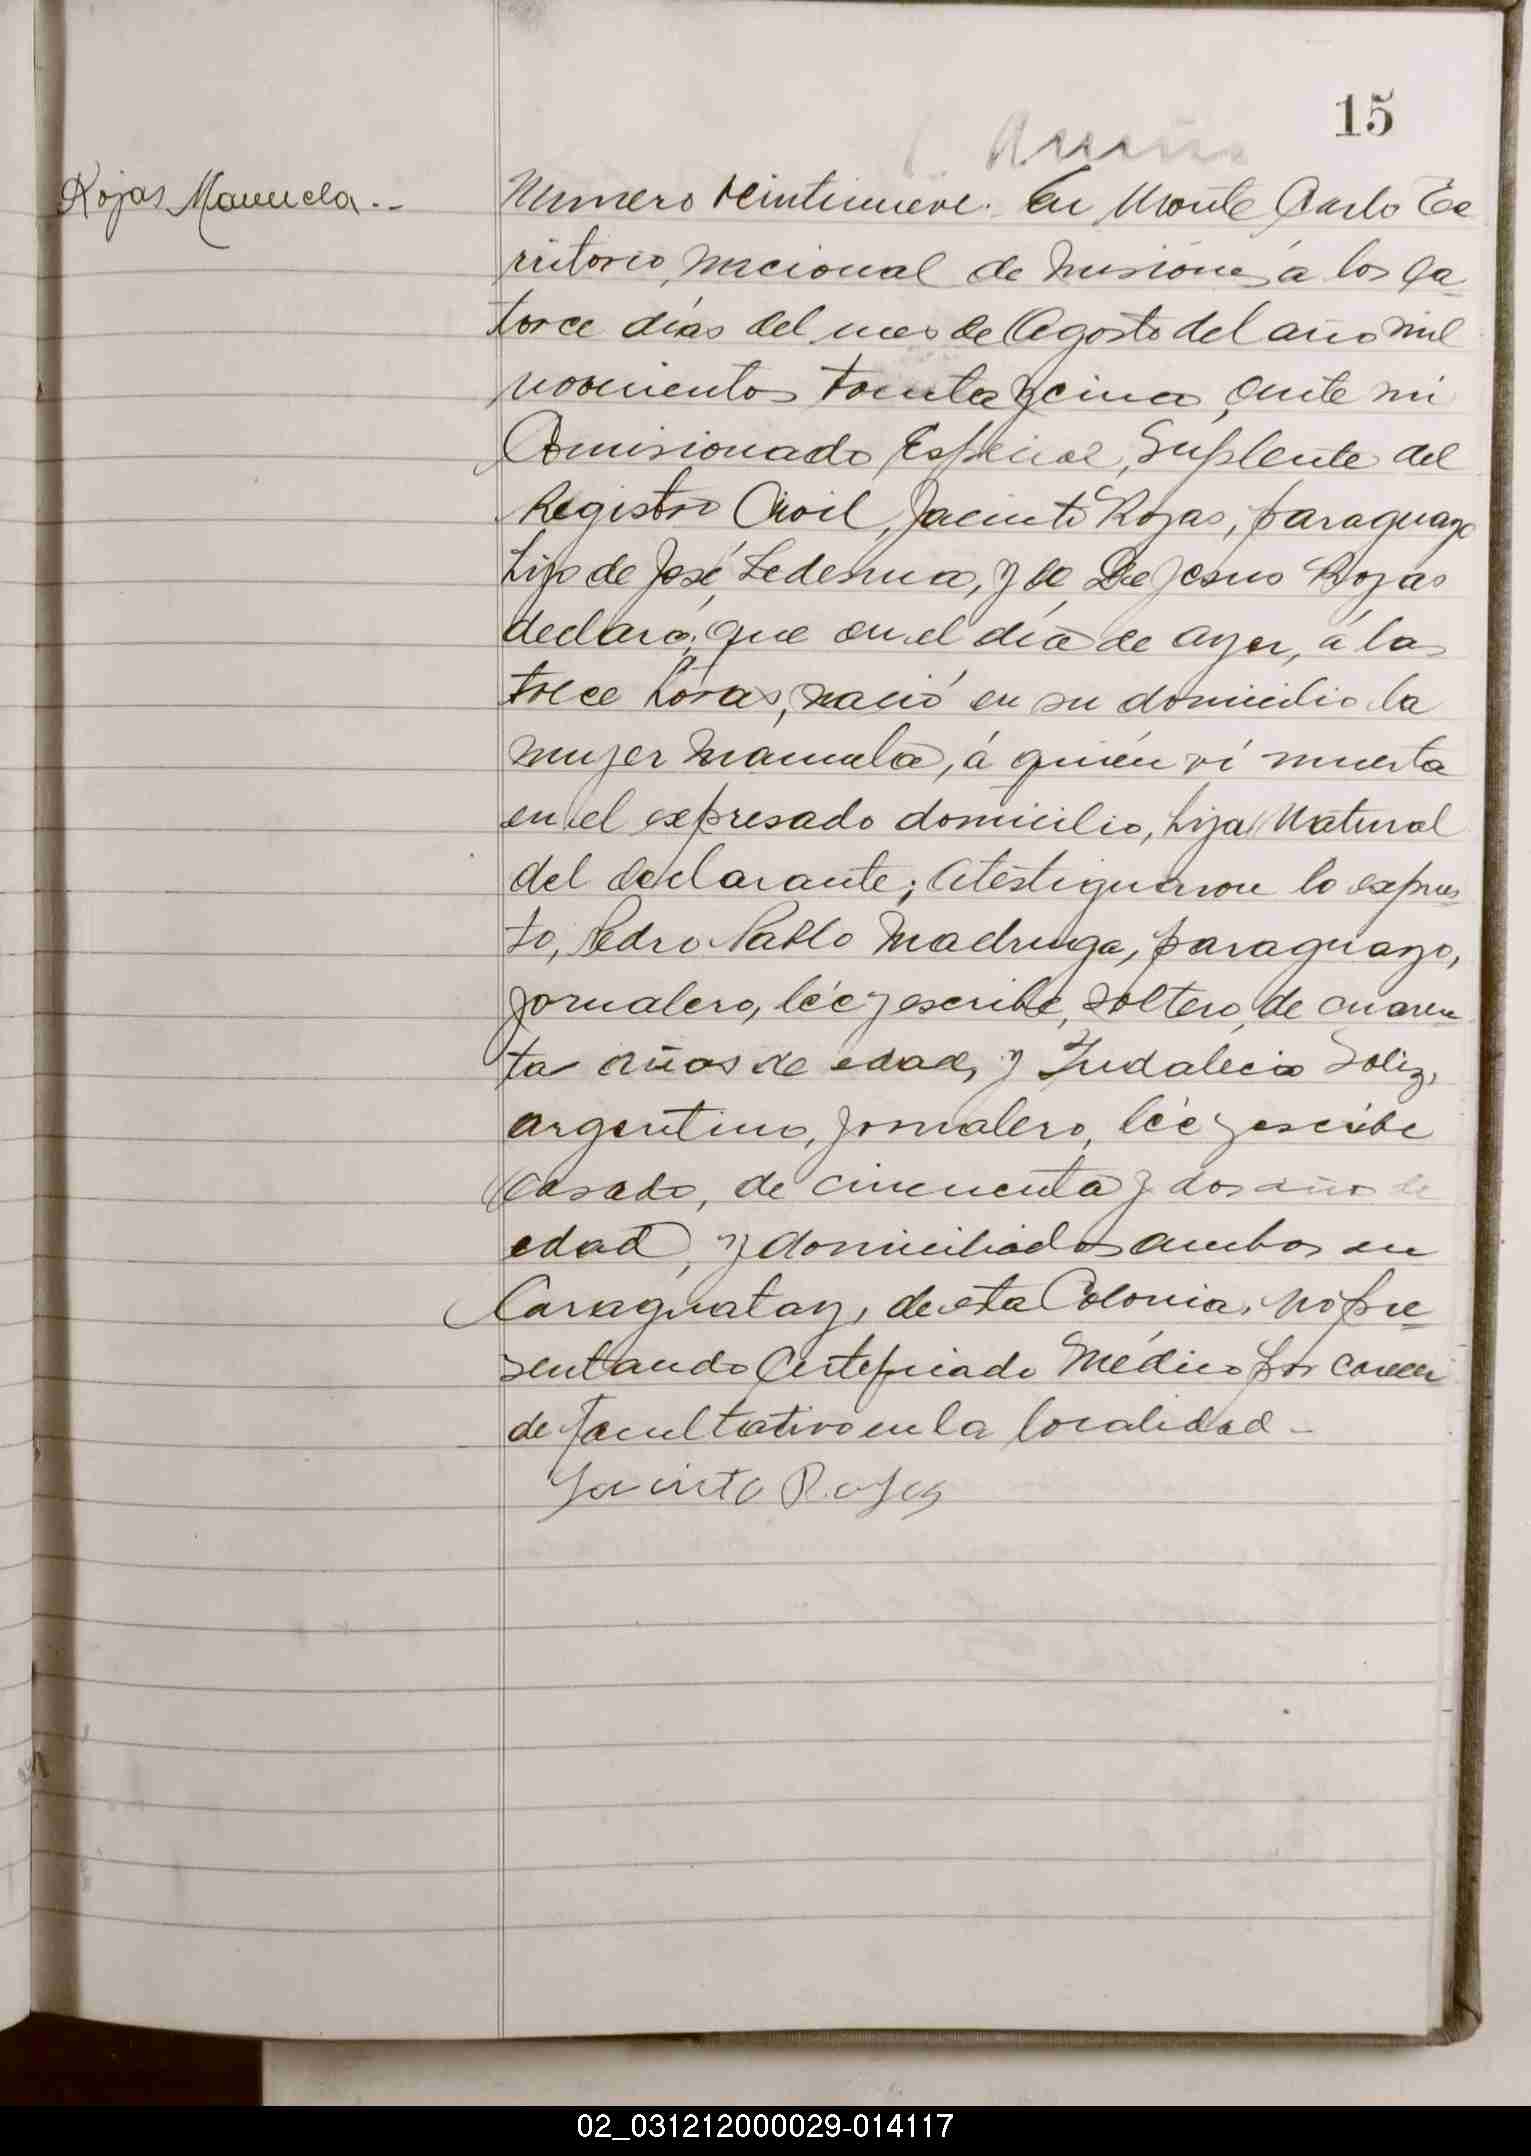 15
Rojas Manuela.-
Numero veintinueve. En Monte Carlo Te
rritorio, Nacional de Misiones á los ca_
torce días del mes de Agosto del año mil
novecientos treinta y cinco, ante mi
Comisionado Especial, Suplente del
Registro Civil, Jacinto Rojas, paraguayo
hijo de José Ledesma, y de De Jesus Rojas
declaró; que en el día de ayer, á las
trece horas, nació en su domicilio la
mujer Manuela, á quién ví muerta
en el expresado domicilio, hija Natural
del declarante; Atestiguaron lo expues_
to, Pedro Pablo Madruga, paraguayo,
jornalero, lée y escribe, soltero, de cuaren_
ta años de edad, y Indalecio Soliz,
argentino, jornalero, lée y escribe
casado, de cincuenta y dos años de
edad, y domiciliados ambos en
Caraguatay, de esta Colonia, no pre_
sentando Certificado Médico por carecer
de facultativo en la localidad -
Jacinto Rojas
02_031212000029-014117